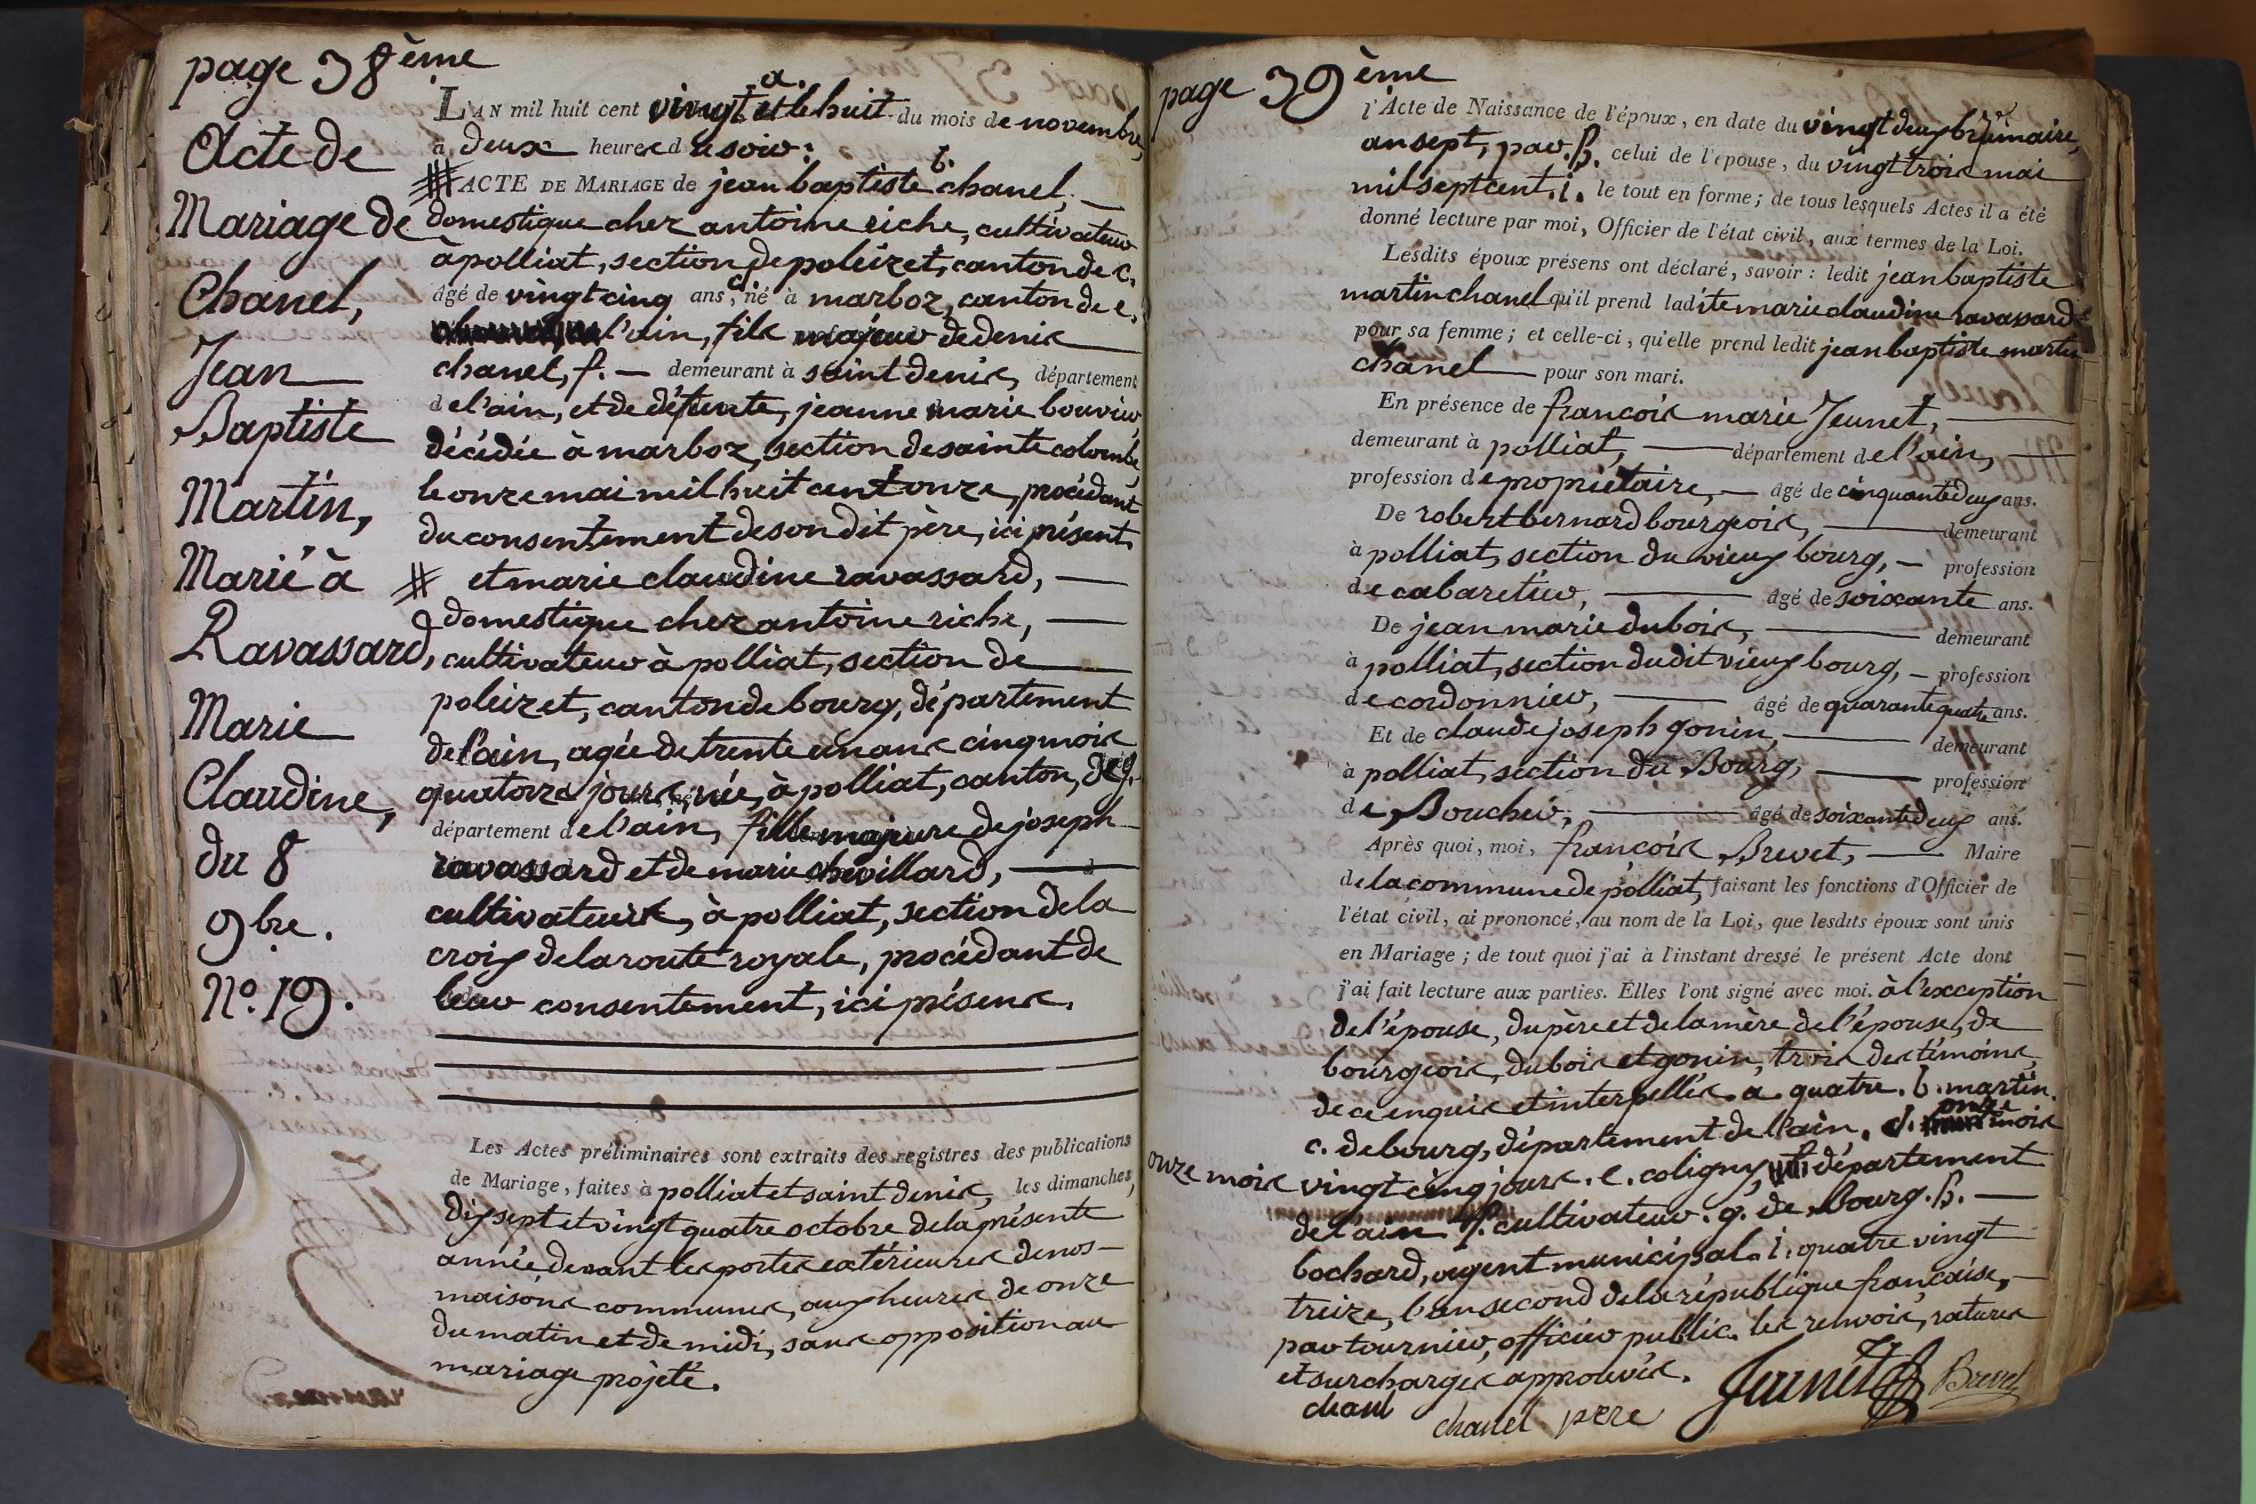 page 38ème
Acte de
Mariage de
Chanel,
Jean
Baptiste
Martin,
Marié à
Ravassard,
Marie
Claudine,
du 8
9bre.
No. 19.
a.
L'AN mil huit cent vingt et le huit du mois de novembre,
à deux heures du soir:
b.
ACTE DE MARIAGE de jean baptiste chanel,
domestique chez antoine riche, cultivateur
à polliat, section de poleizet, canton de c.
d.
âgé de vingt cinq ans, né à marboz, canton de e.
l'ain, fils majeur de denis
chanel, f. — demeurant à saint denis, département
de l'ain, et de défunte, jeanne marie bouvier,
décédée à marboz, section de sainte colombe,
le onze mai mil huit cent onze, procédant
du consentement de son dit père, ici présent.
et marie claudine ravassard, —
domestique chez antoine riche, —
cultivateur à polliat, section de
poleizet, canton de bourg, département
de l'ain, agée de trente un ans cinq mois
quatorze jours, née, à polliat, canton, de g.
département de l'ain, fille majeure de joseph
ravassard et de marie chevillard, —
cultivateurs, à polliat, section de la
croix de la route royale, procédant de
leur consentement, ici présens.
Les Actes préliminaires sont extraits des registres des publications
de Mariage, faites à polliat et saint denis, les dimanches,
dix sept et vingt quatre octobre de la présente
année, devant les portes extérieures de nos —
maisons communes, aux heures de onze
du matin et de midi, sans opposition au
mariage projèté.
page 39ème
l'Acte de Naissance de l'époux, en date du vingt deux brumaire,
an sept, par. h. celui de l'épouse, du vingt trois mai
mil sept cent. i. le tout en forme; de tous lesquels Actes il a été
donné lecture par moi, Officier de l'état civil, aux termes de la Loi.
Lesdits époux présens ont déclaré, savoir: ledit jean baptiste
martin chanel qu'il prend ladite marie claudine ravassard
pour sa femme; et celle-ci, qu'elle prend ledit jean baptiste martin
chanel — pour son mari.
En présence de françois marie Jeunet, —
demeurant à polliat, — département de l'ain, —
profession de propriétaire, — âgé de cinquante deux ans.
De robert bernard bourgeois, — demeurant
à polliat, section du vieux bourg, — profession
de cabaretier, — âgé de soixante ans.
De jean marie dubois, — demeurant
à polliat, section dudit vieux bourg, — profession
de cordonnier, — âgé de quarante quatre ans.
Et de claude joseph gonin, — demeurant
à polliat, section du Bourg, — profession
de Boucher, — âgé de soixante deux ans.
Après quoi, moi, françois Brevet, — Maire
de la commune de polliat, faisant les fonctions d'Officier de
l'état civil, ai prononcé, au nom de la Loi, que lesdits époux sont unis
en Mariage; de tout quoi j'ai à l'instant dressé le présent Acte dont
j'ai fait lecture aux parties. Elles l'ont signé avec moi. à l'exception
de l'épouse, du père et de la mère de l'épouse, de
bourgeois, dubois et gonin, trois des témoins,
de ce enquis et interpellés. a. quatre. b. martin.
c. de bourg, département de l'ain. d. onze mois
onze mois vingt cinq jours. e. coligny, département
de l'ain f. cultivateur. g. de Bourg. h. —
bochard, agent municipal. i. quatre vingt
treize, l'an second de la république française, —
par tournier, officier public. les renvois, ratures
et surcharges approuvés.
chanl
chanel père
Jeunet
Brevet